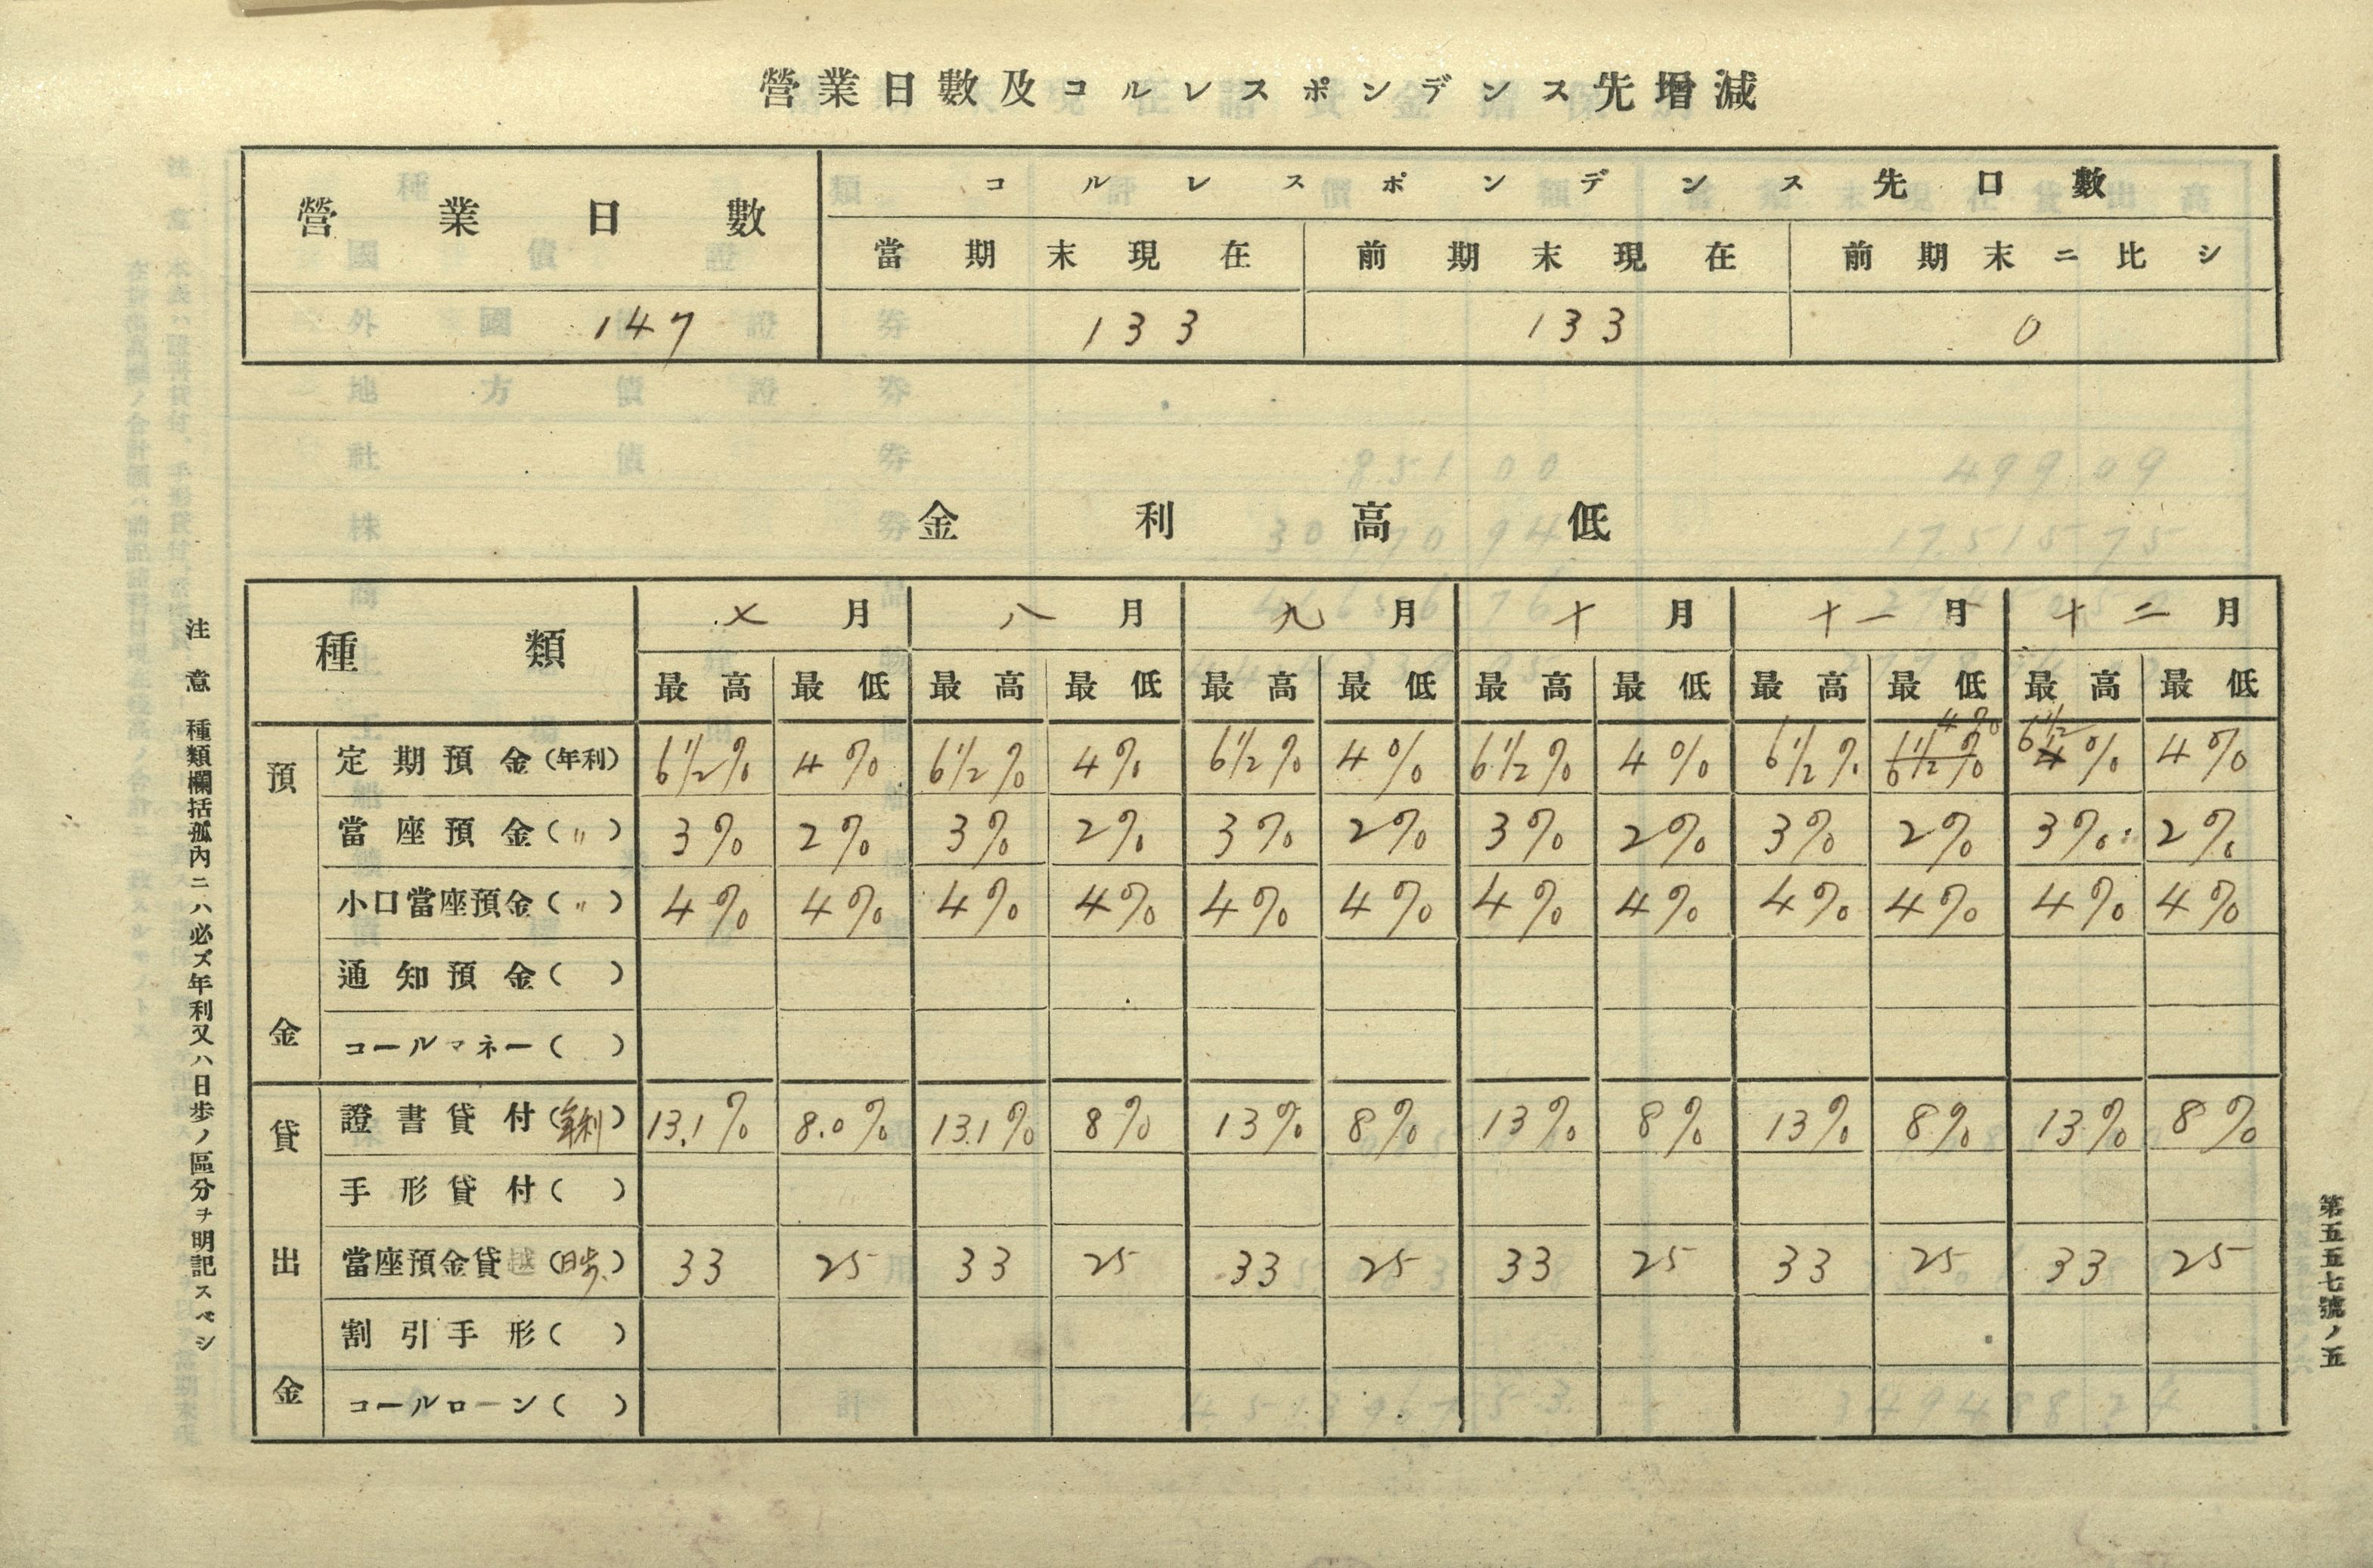 營業日數及コルレスポンデンス先增減
營業日數 コルレスポンデンス先口數
當期末現在 前期末現在 前期末ニ比シ
147 133 133 0
金利高低
種類 七月 八月 九月 十月 十一月 十二月
最高 最低 最高 最低 最高 最低 最高 最低 最高 最低 最高 最低
預金
定期預金(年利) 6 1/2% 4% 6 1/2% 4% 6 1/2% 4% 6 1/2% 4% 6 1/2% 6 1/2% 4% 6 1/2 4% 4%
當座預金(〃) 3% 2% 3% 2% 3% 2% 3% 2% 3% 2% 3% 2%
小口當座預金(〃) 4% 4% 4% 4% 4% 4% 4% 4% 4% 4% 4% 4%
通知預金( )
コールマネー( )
貸出金
證書貸付(年利) 13.1% 8.0% 13.1% 8% 13% 8% 13% 8% 13% 8% 13% 8%
手形貸付( )
當座預金貸越(日歩) 33 25 33 25 33 25 33 25 33 25 33 25
割引手形( )
コールローン( )
注意 種類欄括孤內ニハ必ズ年利又ハ日歩ノ區分ヲ明記スベシ
第五五七號ノ五